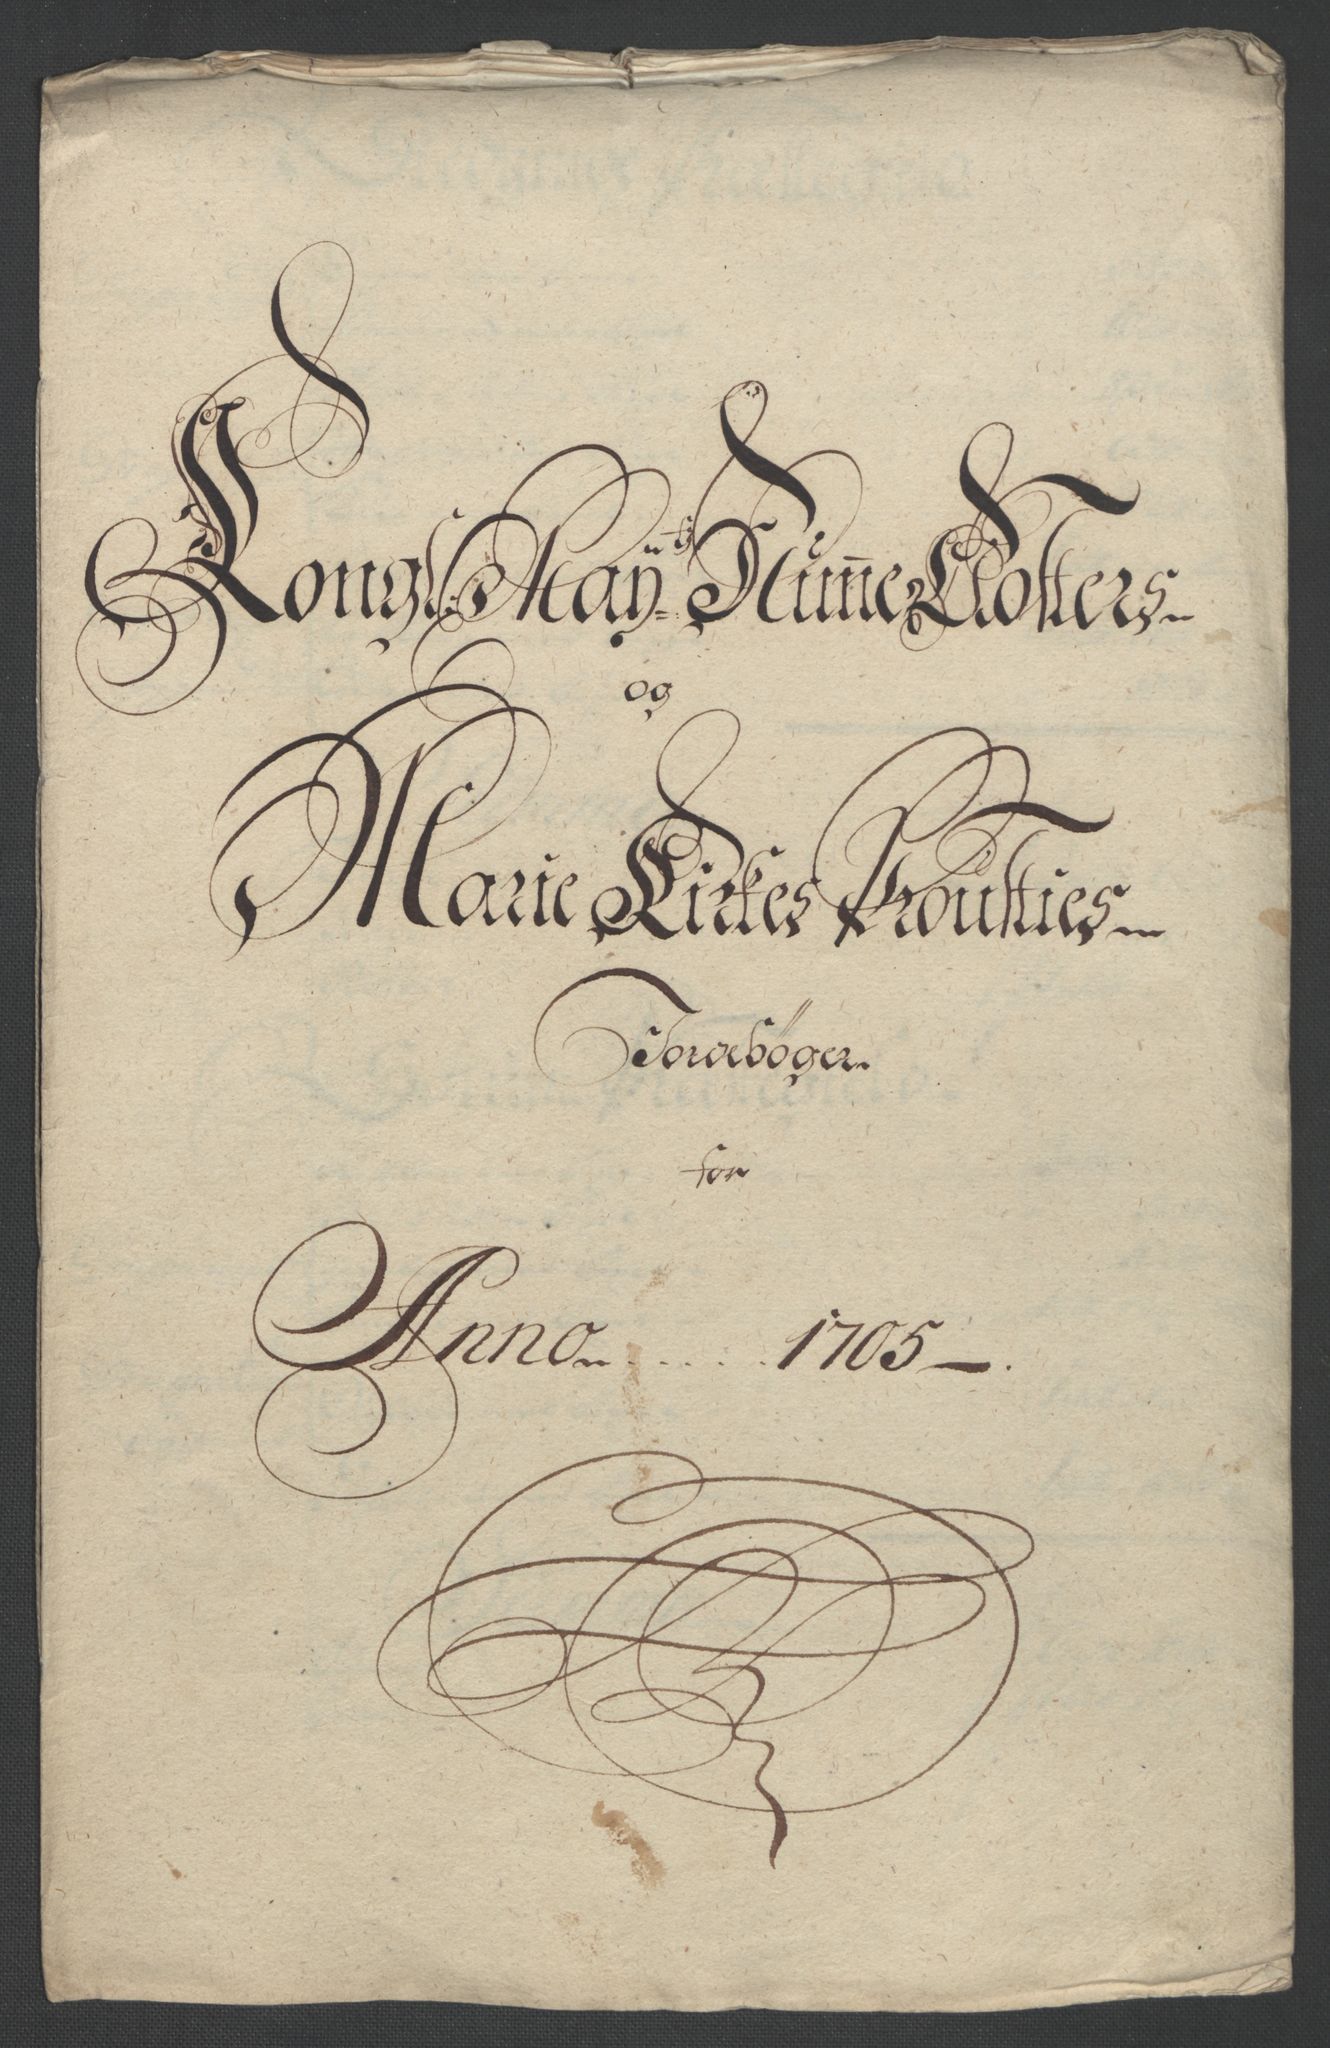 Kongl: Maÿ:ts Nunne Closters
og
Marie Kirkes Prousties
Jordebøger
for
Anno . . . . . 1705